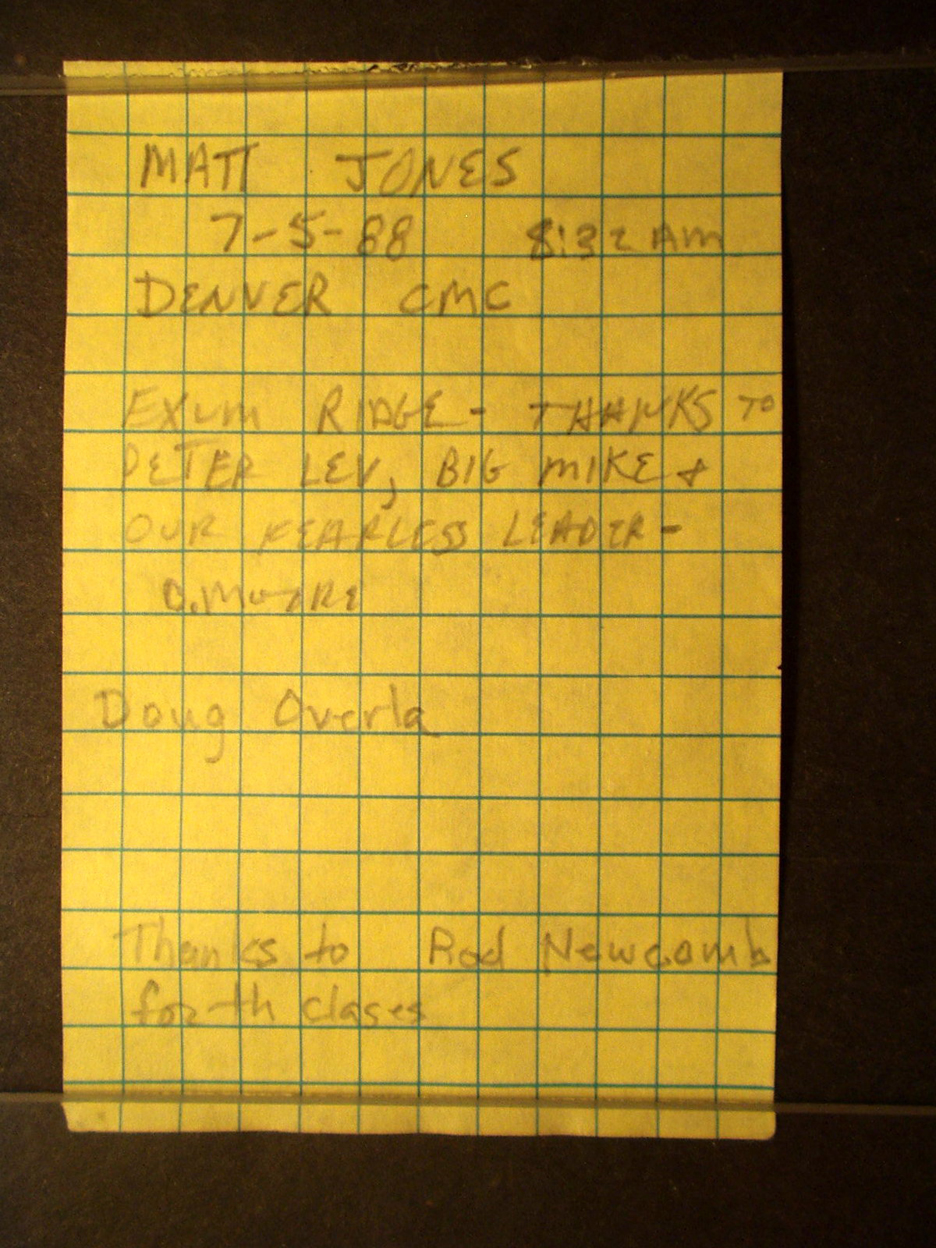 MATT JONES
7-5-88 8:32 AM
DENVER CMC
EXUM RIDGE - THANKS TO
PETER LEV, BIG MIKE &
OUR FEARLESS LEADER -
Doug Overla
Thanks to Rod Newcomb
for th clases